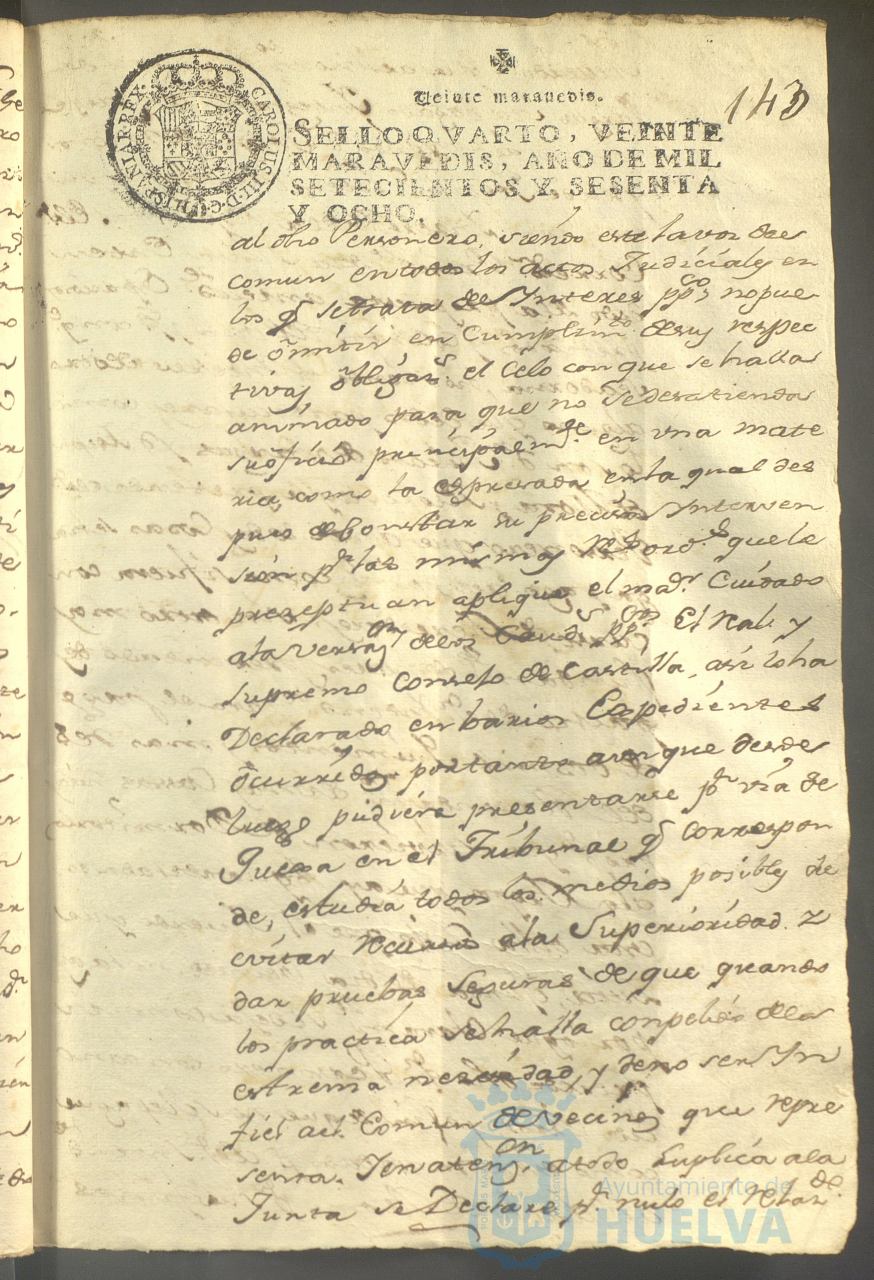 143
CAROLUS III D. G. HISPANIAR. REX.
Veinte maravedis.
SELLO QVARTO, VEINTE
MARAVEDIS, AÑO DE MIL
SETECIENTOS Y SESENTA
Y OCHO.
al dho Personero, siendo este la voz del
comun en todos los actos Judiciales en
los q̃ se trata de Interes ppco, no pue
de omitir en Cumplimto. de sus respec
tivas obligazs. el Celo con que se halla
animado para que no se desatienda
su oficio prinsipalmte. en vna mate
ria, como la espresada en la qual des
pues de constar su precisa Interven
sion pr. las mismas Rs. ords. que le
prezeptuan aplique el mar. Cuidado
a la Verson. de los Cauds. ppcos. El Real y
Supremo Consejo de Castilla, asi lo ha
Declarado en barios Espedientes
ocurridos portanto aunque desde
luego pudiera presentarse pr. via de
Quexa en el Tribunal q̃ correspon
de, estudia todos los medios posibles de
evitar recursos a la Superioridad. y
dar pruebas seguras de que quando
los practica se halla conpelido de la
estrema nezesidad, y de no ser In
fiel al Comun de vecinos que repre
senta. Jen atenon. a todo suplica a la
Junta se Declare pr. nulo el
Ayuntamiento de
HUELVA